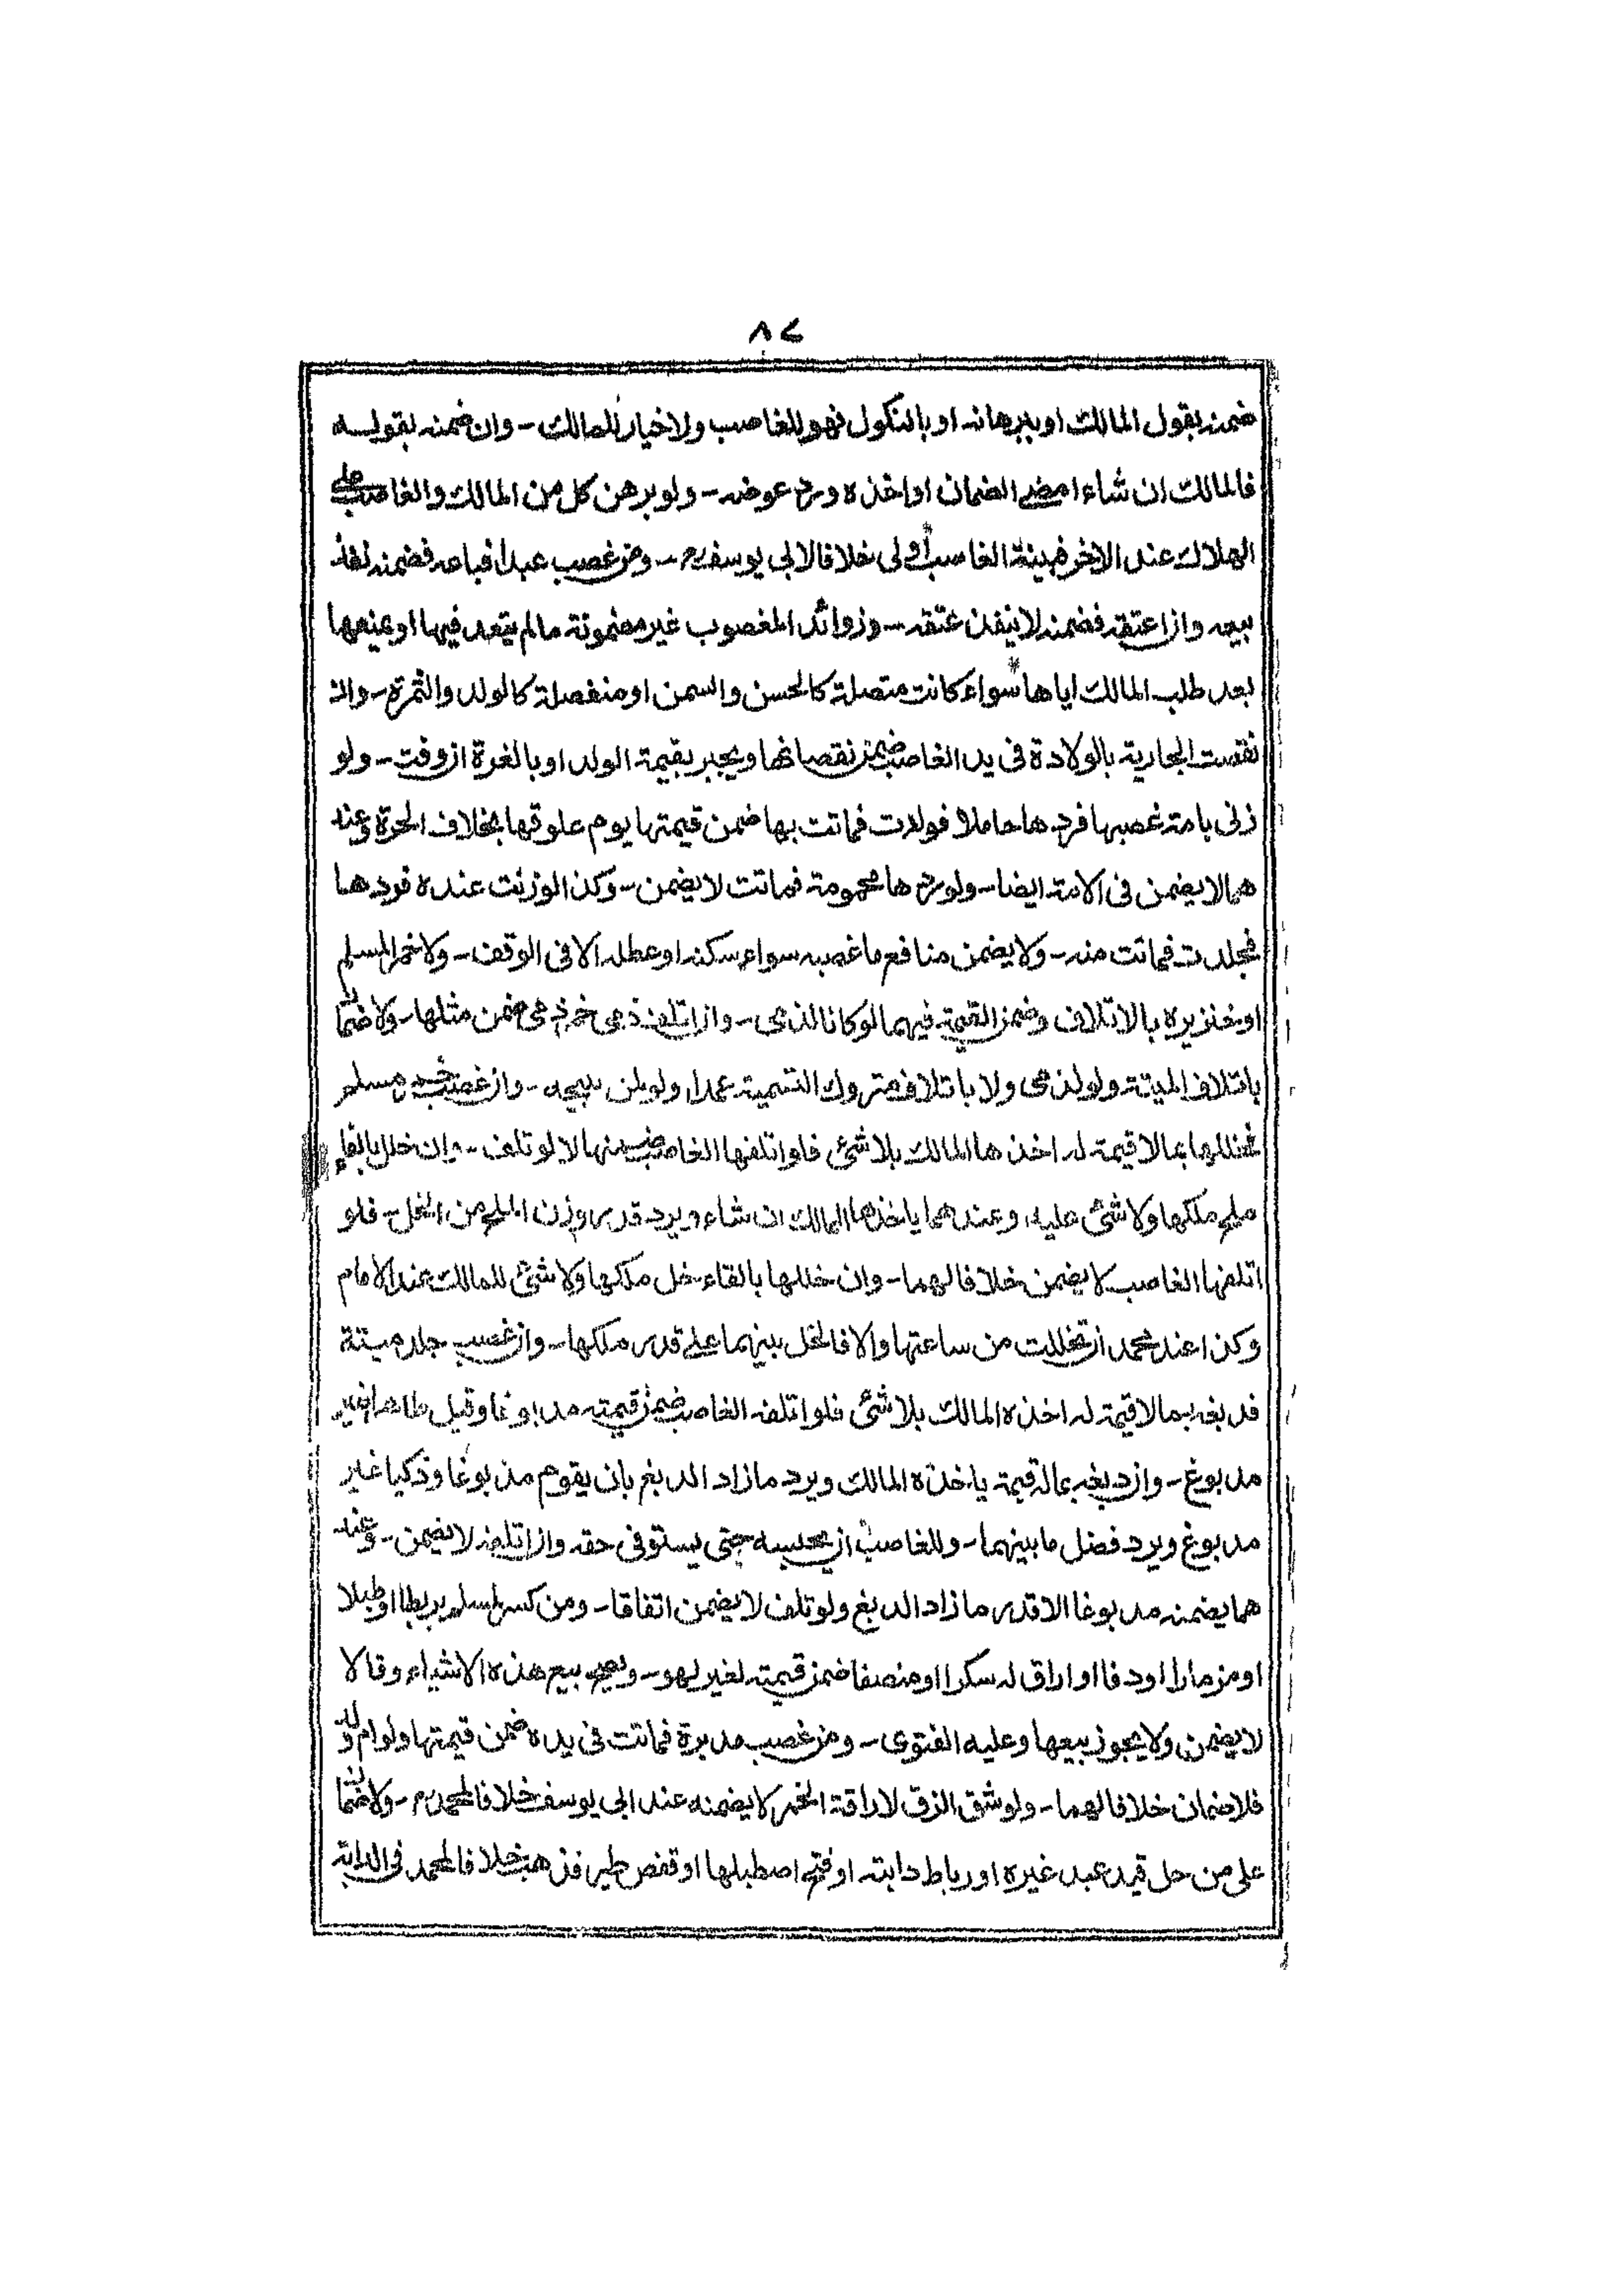 ٨٢
ضمنه بقول المالك او ببرهانه او بالنكول فهو للغاصب ولا خيار للمالك - وان ضمنه بقوله
فالمالك ان شاء امضى الضمان او اخذه ورد عوضه - ولو برهن كل من المالك والغاصب على
الهلاك عند الاخر فبينة الغاصب اولى خلافا لابى يوسف رح - ومن غصب عبدا فباعه فضمنه نفذ
بيعه وان اعتقه فضمنه لا ينفذ عتقه - وزوائد المغصوب غير مضمونة مالم يتعد فيها او يمنعها
بعد طلب المالك اياها سواء كانت متصلة كالحسن والسمن او منفصلة كالولد والثمرة - وان
نقصت الجارية بالولادة فى يد الغاصب ضمن نقصانها ويجبر بقيمة الولد او بالغرة ان وفت - ولو
زنى بامة غصبها فردها حاملا فولدت فماتت بها ضمن قيمتها يوم علوقها بخلاف الحرة وعند
هما لا يضمن فى الامة ايضا - ولو ردها محمومة فماتت لا يضمن - وكذا لو زنت عنده فردها
فجلدت فماتت منه - ولا يضمن منافع ما غصبه سواء سكنه او عطله الا فى الوقف - ولا خمر المسلم
او خنزيره بالاتلاف وضمن القيمة فيهما لو كانا لذمى - وان اتلف ذمى خمر ذمى ضمن مثلها - ولا ضمان
باتلاف الميتة ولو لذمى ولا باتلاف متروك التسمية عمدا ولو لمن يبيحه - وان غصب خمر مسلم
فخللها بما لا قيمة له اخذها المالك بلا شئ فلو اتلفها الغاصب ضمنها لا لو تلف - وان خلل بالقاء
ملح ملكها ولا شئ عليه وعندهما ياخذها المالك ان شاء ويرد قدر وزن الملح من الخل - فلو
اتلفها الغاصب لا يضمن خلافا لهما - وان خللها بالقاء خل ملكها ولا شئ للمالك عند الامام
وكذا عند محمد ان تخللت من ساعتها والا فالخل بينهما على قدر ملكها - وان غصب جلد ميتة
فدبغه بما لا قيمة له اخذه المالك بلا شئ فلو اتلفه الغاصب ضمن قيمته مدبوغا وقيل طاهرا غير
مدبوغ - وان دبغه بماله قيمة ياخذه المالك ويرد ما زاد الدبغ بان يقوم مدبوغا وذكيا غير
مدبوغ ويرد فضل ما بينهما - وللغاصب ان يحبسه حتى يستوفى حقه وان اتلفه لا يضمن - وعند
هما يضمنه مدبوغا الا قدر ما زاد الدبغ ولو تلف لا يضمن اتفاقا - ومن كسر لمسلم بربطا او طبلا
او مزمارا او دفا او اراق له سكرا او منصفا ضمن قيمته لغير لهو - ويصح بيع هذه الاشياء وقالا
لا يضمن ولا يجوز بيعها وعليه الفتوى - ومن غصب مدبرة فماتت فى يده ضمن قيمتها ولو ام ولد
فلا ضمان خلافا لهما - ولو شق الزق لاراقة الخمر لا يضمنه عند ابى يوسف خلافا لمحمد رح - ولا ضمان
على من حل قيد عبد غيره او رباط دابته او فتح اصطبلها او قفص طير فذهب خلافا لمحمد فى الدابة